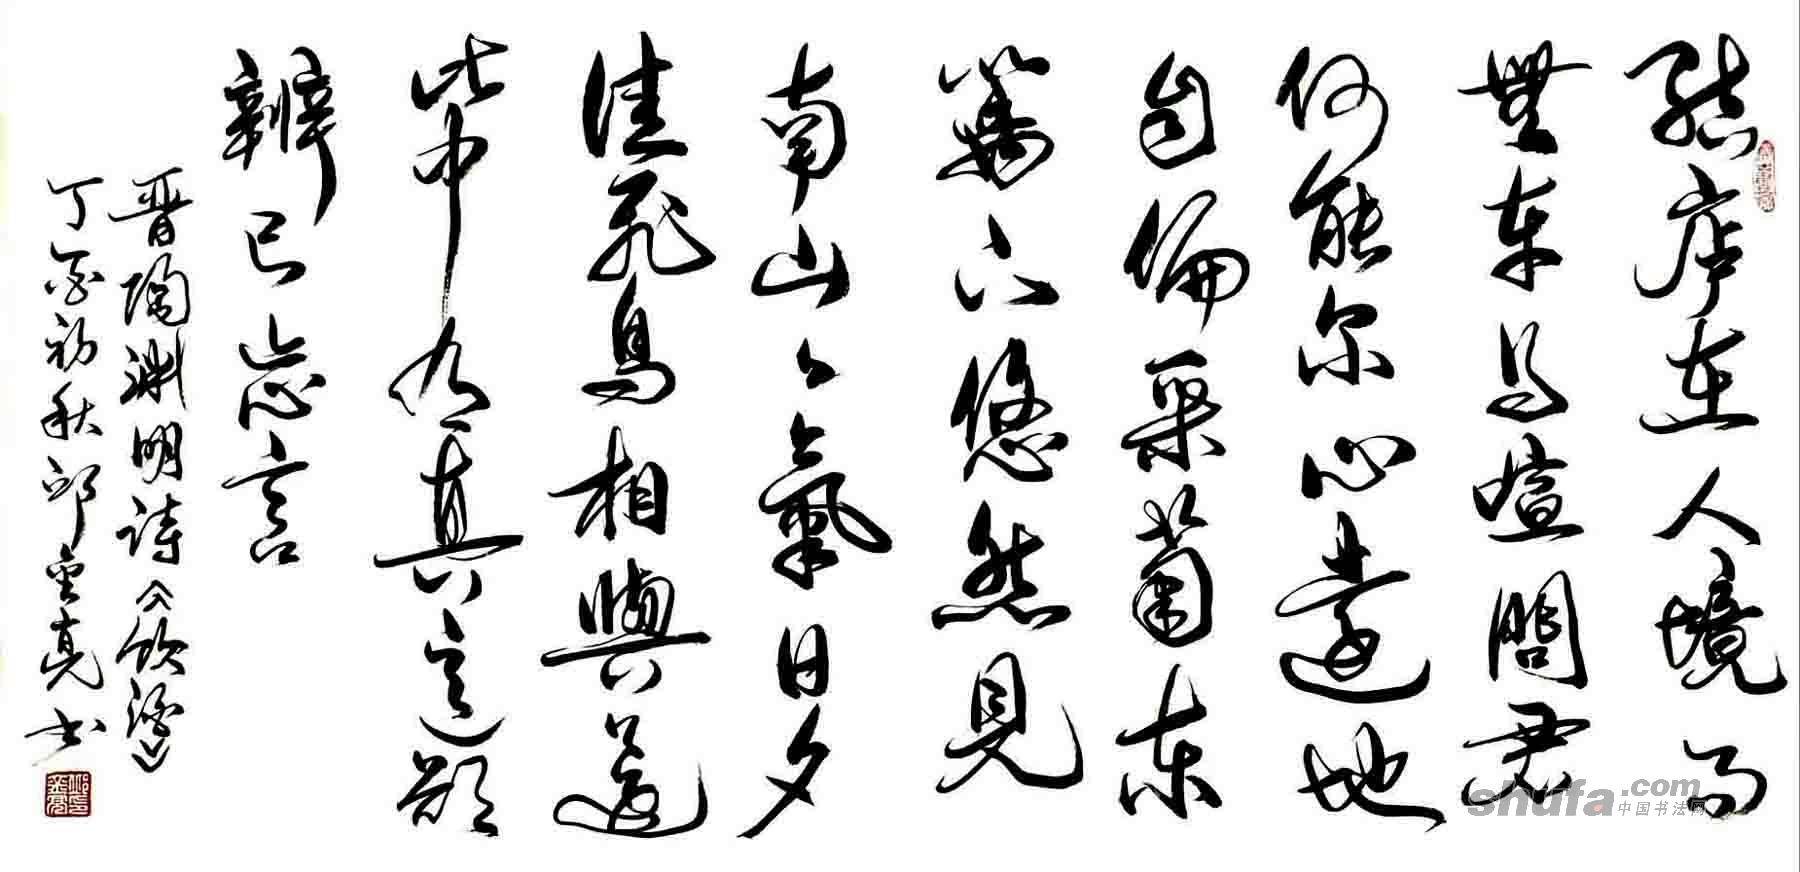 结庐在人境而
無车马喧問君
何能尔心遠地
自偏采菊东
篱下悠然見
南山山氣日夕
佳飛鳥相與還
此中有真意欲
辨已忘言
晋陶渊明诗《饮酒》
丁酉初秋邱金亮书
shufa.com
中国书法网